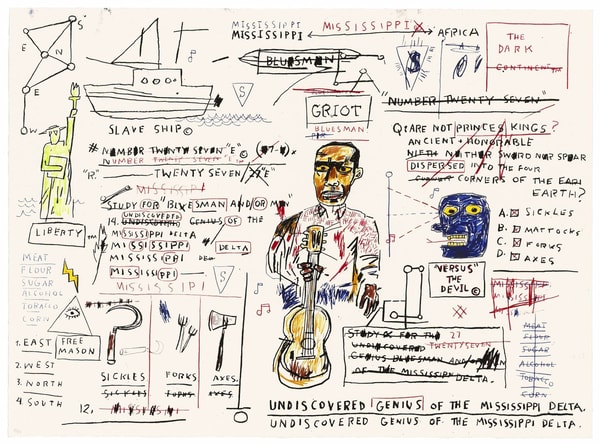 MISSISSIPPI
MISSISSIPPI
MISSISSIPPI
AFRICA
THE
DARK
CONTINENT
BLUESMAN
S
S
E
N
E
W
S
SLAVE SHIP©
GRIOT
BLUESMAN
"NUMBER TWENTY SEVEN"
# NUMBER TWENTY SEVEN "E"©
NUMBER TWENTY SEVEN "E"
"R" TWENTY SEVEN "E"
MISSISSIPPI
STUDY FOR "BLUESMAN AND/OR MAN"
UNDISCOVERED
14. UNDISCOVERED GENIUS OF THE
MISSISSIPPI DELTA
MISSISSIPPI DELTA
MISSISSIPPI
MISSISSIPPI
MISSISSIPPI
S
Q: ARE NOT PRINCES KINGS?
ANCIENT + HONORABLE
NIETH NEITHER SWORD NOR SPEAR
DISPERSED INTO THE FOUR
CORNERS OF THE
EARTH?
A. SICKLES
B. MATTOCKS
C. FORKS
D. AXES
"VERSUS"
THE
DEVIL ©
LIBERTY™
MEAT
FLOUR
SUGAR
ALCOHOL
TOBACCO
CORN
FREE
MASON
1. EAST
2. WEST
3. NORTH
4. SOUTH
SICKLES
SICKLES
FORKS
FORKS
AXES.
AXES
12. MISSISSIPPI
MISSISSIPPI
MISSISSIPPI
STUDY FOR THE 27
UNDISCOVERED TWENTYSEVEN
GENIUS BLUESMAN AND/OR MAN
OF THE MISSISSIPPI DELTA.
MEAT
FLOUR
SUGAR
ALCOHOL
TOBACCO
CORN
UNDISCOVERED GENIUS OF THE MISSISSIPPI DELTA.
UNDISCOVERED GENIUS OF THE MISSISSIPPI DELTA.